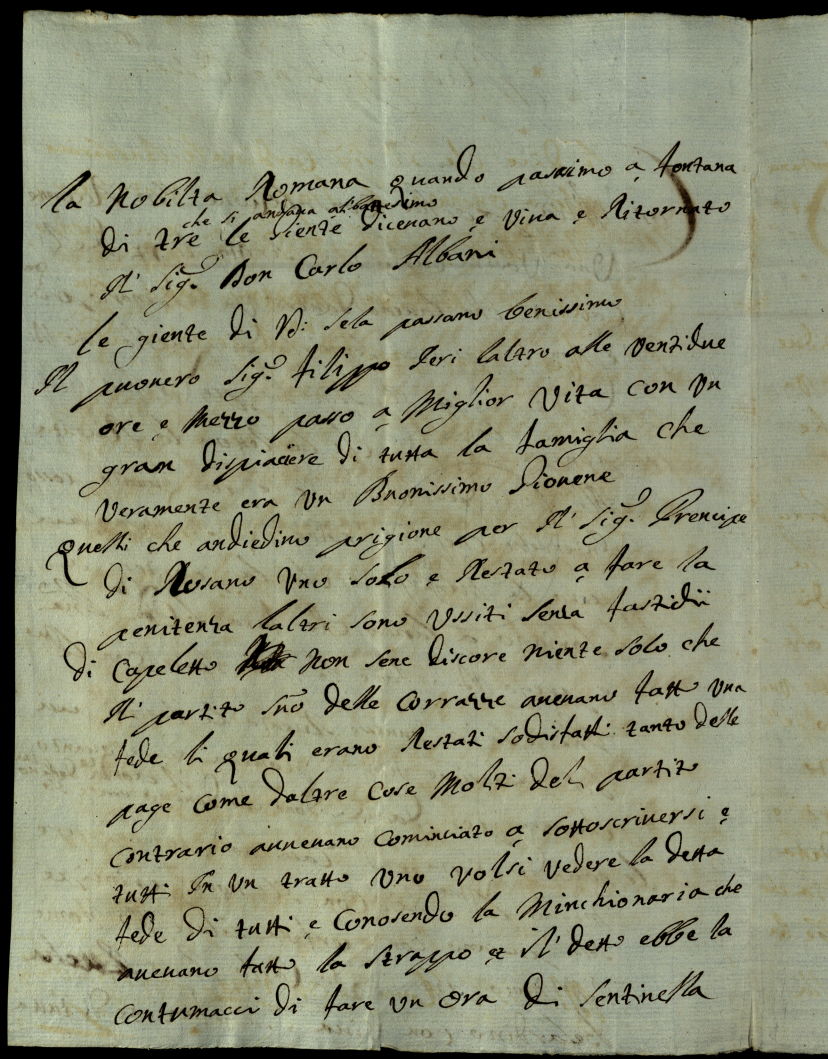 la Nobilta Romana quando passimo a fontana
che si andava al battesimo
di tre le giente dicevano e viva e Ritornato
Il Sig.r Don Carlo Albani
le giente di V.S: sela passano benissimo
Il puovero Sig.r filippo Ieri laltro alle ventidue
ore e mezzo passo a Miglior Vita con un
gran dispiacere di tutta la famiglia che
veramente era un Buonissimo Giovene
Quelli che andiedino prigione per Il Sig.r Prencipe
di Rosano uno solo e Restato a fare la
penitenza laltri sono ussiti senza fastidii
di Capeletto non sene discore niente solo che
Il partito suo delle Corrazze avevano fatto una
fede li quali erano Restati sodisfatti tanto delle
page come daltre cose Molti del partito
contrario avvevano cominciato a sottoscriversi e
tutti In un tratto uno volsi vedere la detta
fede di tutti e Conosendo la Minchionaria che
avevano fatto la strappo et il detto ebbe la
contumacci di fare un ora di sentinella